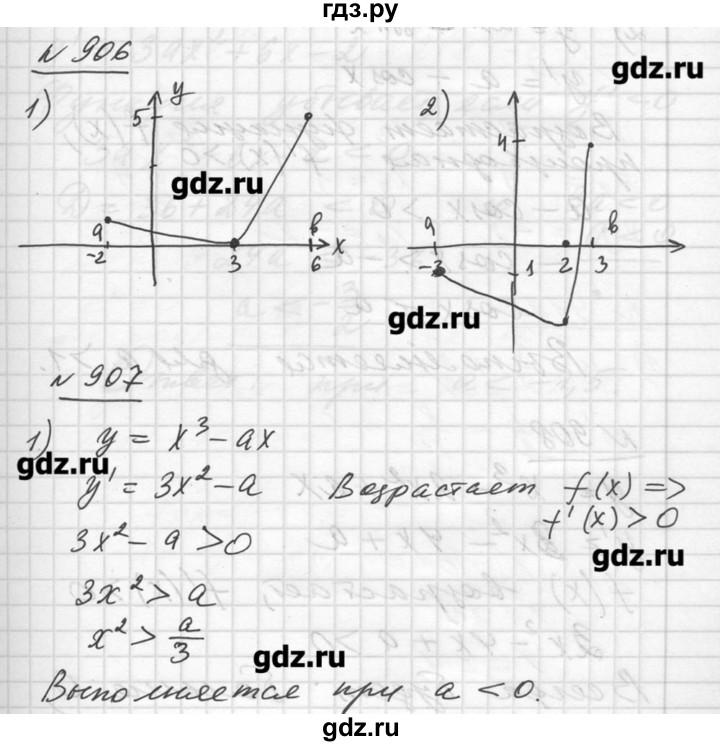 гдз.ру
N 906
gdz.ru
1) y 5 a -2 3 b 6 x
2) 4 a -3 1 2 b 3
gdz.ru
gdz.ru
N 907
1) y = x³ - ax
gdz.ru
y' = 3x² - a Возрастает f(x) =>
f'(x) > 0
3x² - a > 0
gdz.ru
3x² > a
x² > a/3
gdz.ru
Выполняется при a < 0.
gdz.ru